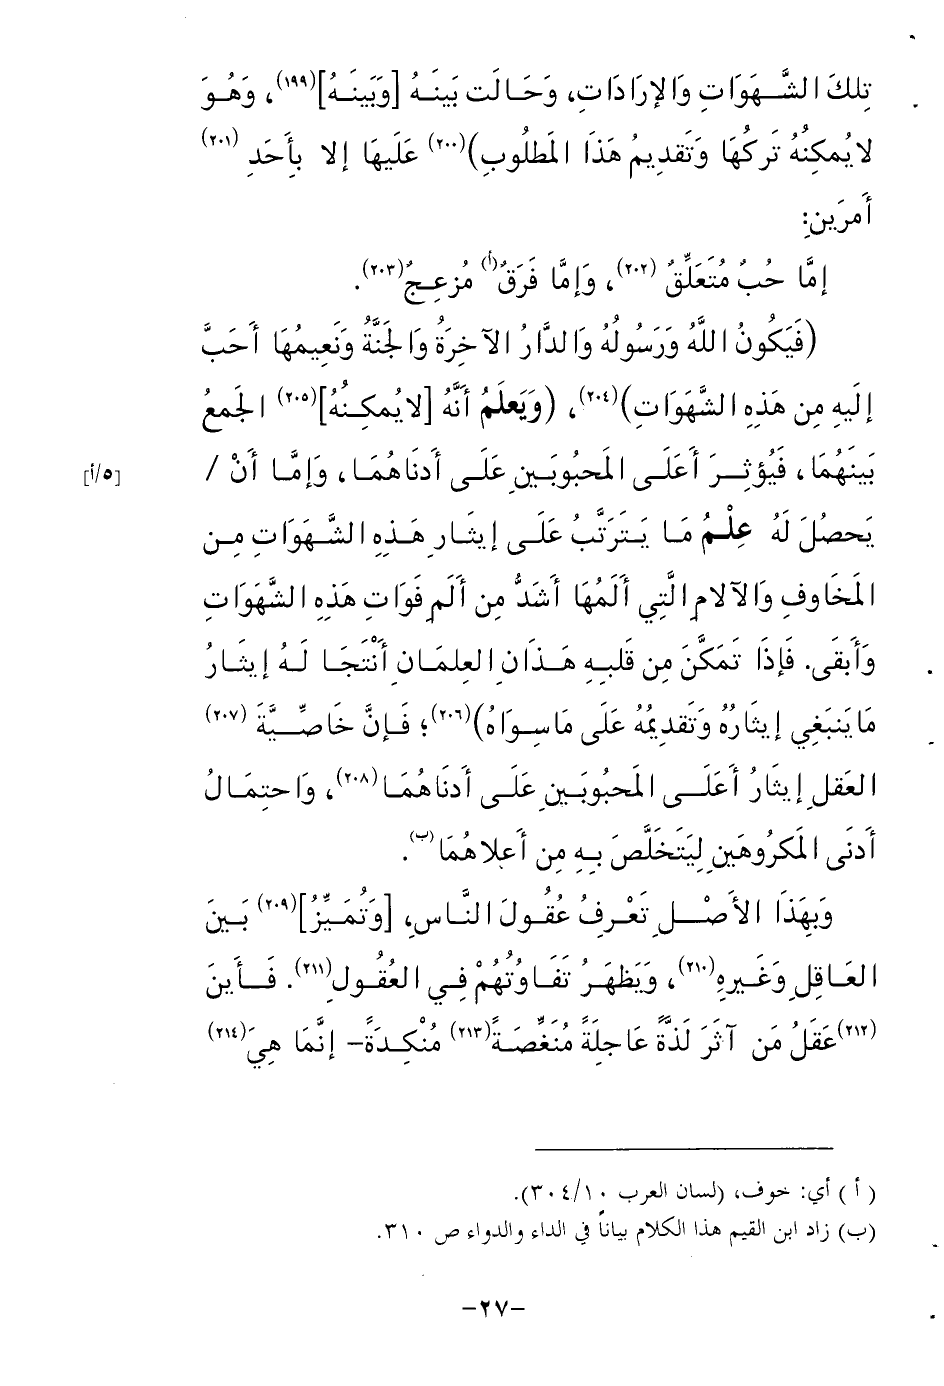 تِلكَ الشَّهَوَاتِ وَالإرَادَاتِ، وَحَالَت بَينَهُ [وَبَينَهُ](١٩٩)، وَهُوَ
لايُمكِنُهُ تَركُهَا وَتَقدِيمُ هَذَا المَطلُوبِ)(٢٠٠) عَلَيهَا إلا بِأَحَدِ (٢٠١)
أَمرَينِ:
إمَّا حُبٌ مُتَعَلِّقٌ (٢٠٢)، وَإمَّا فَرَقٌ(أ) مُزعِجٌ(٢٠٣).
(فَيَكُونُ اللَّهُ وَرَسُولُهُ وَالدَّارُ الآخِرَةُ وَالجَنَّةُ وَنَعِيمُهَا أَحَبَّ
إلَيهِ مِن هَذِهِ الشَّهَوَاتِ)(٢٠٤)، (وَيَعلَمُ أَنَّهُ [لايُمكِنُهُ](٢٠٥) الجَمعُ
بَينَهُمَا، فَيُؤثِرَ أَعلَى المَحبُوبَينِ عَلَى أَدنَاهُمَا، وَإمَّا أَنْ /
[٥/أ]
يَحصُلَ لَهُ عِلْمُ مَا يَتَرَتَّبُ عَلَى إيثَارِ هَذِهِ الشَّهَوَاتِ مِن
المَخَاوِفِ وَالآلامِ الَّتِي أَلَمُهَا أَشَدُّ مِن أَلَمِ فَوَاتِ هَذِهِ الشَّهَوَاتِ
وَأَبقَى. فَإذَا تَمَكَّنَ مِن قَلبِهِ هَذَانِ العِلمَانِ أَنْتَجَا لَهُ إيثَارُ
مَايَنبَغِي إيثَارُهُ وَتَقدِيمُهُ عَلَى مَاسِوَاهُ)(٢٠٦)؛ فَإنَّ خَاصِّيَّةَ (٢٠٧)
العَقلِ إيثَارُ أَعلَى المَحبُوبَينِ عَلَى أَدنَاهُمَا(٢٠٨)، وَاحتِمَالُ
أَدنَى المَكرُوهَينِ لِيَتَخَلَّصَ بِهِ مِن أَعلاهُمَا(ب).
وَبِهَذَا الأَصْلِ تَعْرِفُ عُقُولَ النَّاسِ، [وَتُمَيِّزُ](٢٠٩) بَينَ
العَاقِلِ وَغَيرِهِ(٢١٠)، وَيَظهَرُ تَفَاوُتُهُمْ فِي العُقُولِ(٢١١). فَأَينَ
(٢١٢)عَقلُ مَن آثَرَ لَذَّةً عَاجِلَةً مُنَغِّصَةً(٢١٣) مُنْكِدَةً– إنَّمَا هِيَ(٢١٤)
( أ ) أي: خوف، (لسان العرب ٣٠٤/١٠).
(ب) زاد ابن القيم هذا الكلام بياناً في الداء والدواء ص ٣١٠.
-٢٧-